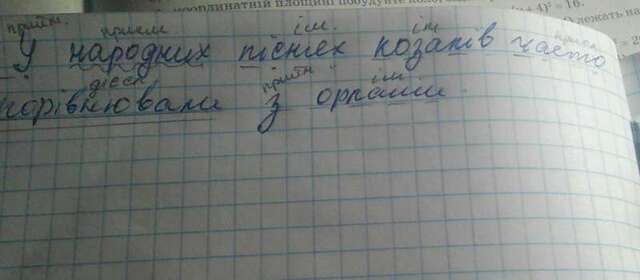 координатній площині побудуйте
+ 4)² = 16.
лежать на
прийм. прикм ім. ім присл
У народних піснях козаків часто
дієсл прийм ім
порівнювали з орлами.